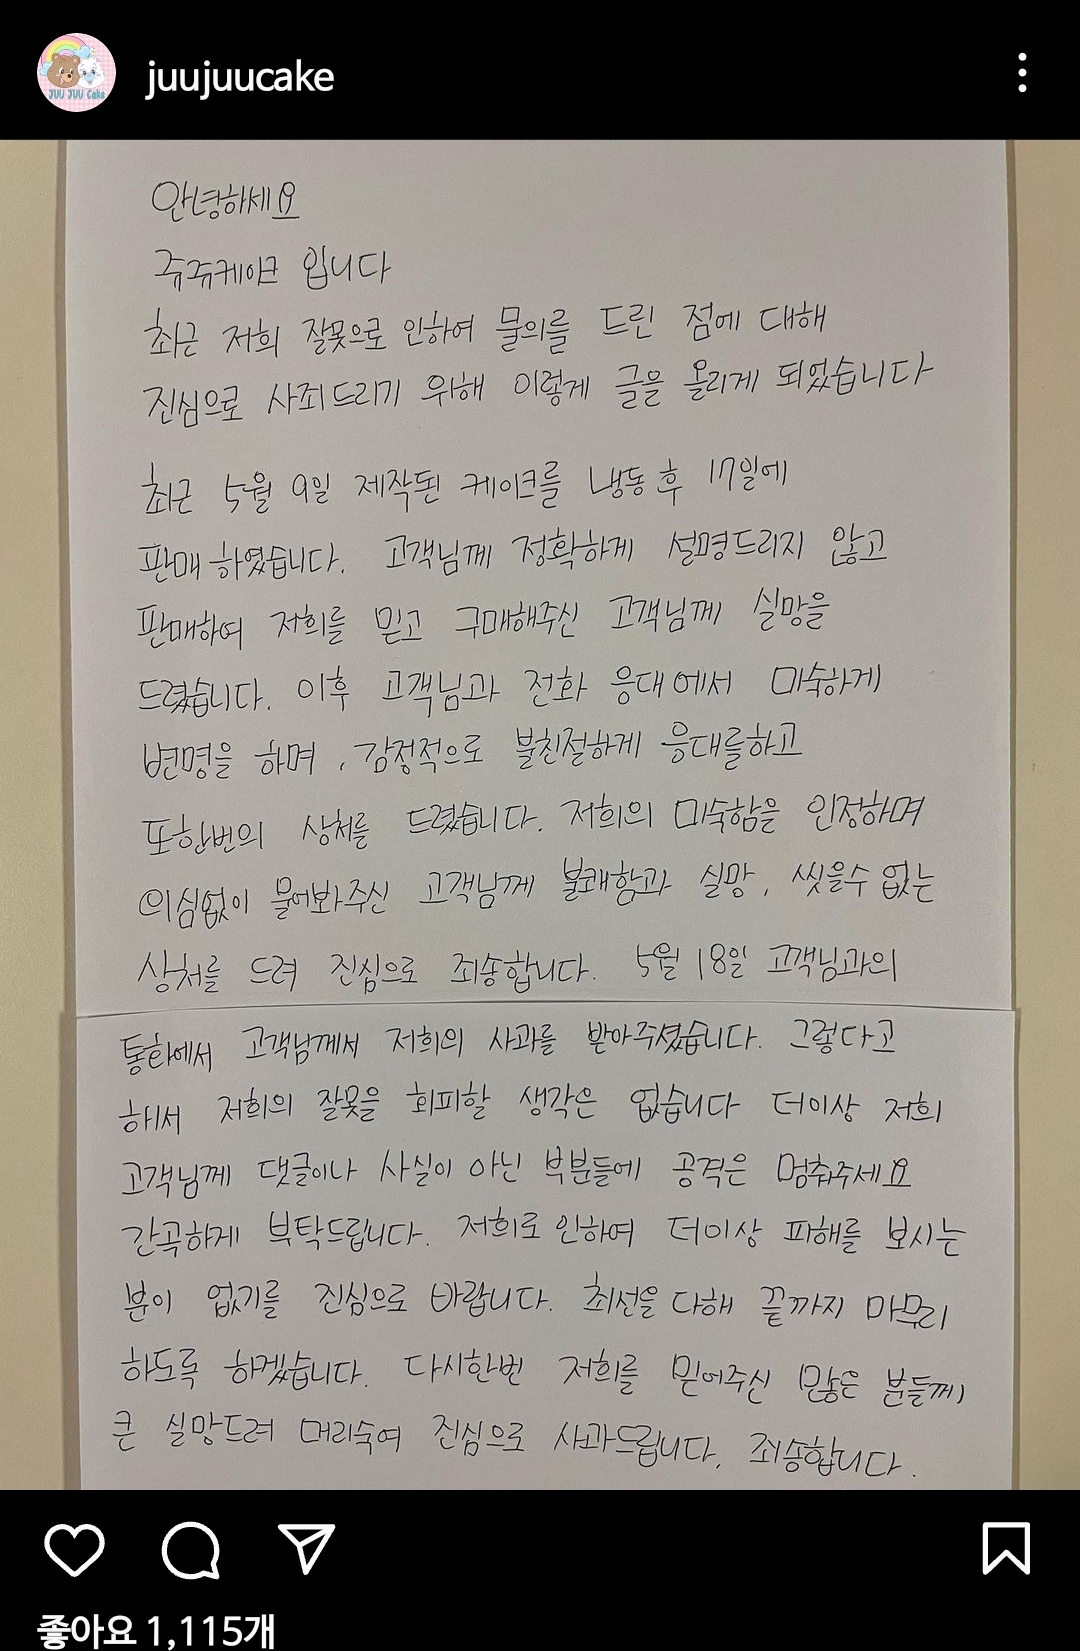 JUU JUU Cake
juujuucake
안녕하세요
쥬쥬케이크 입니다
최근 저희 잘못으로 인하여 물의를 드린 점에 대해
진심으로 사죄드리기 위해 이렇게 글을 올리게 되었습니다
최근 5월 9일 제작된 케이크를 냉동 후 17일에
판매 하였습니다. 고객님께 정확하게 설명드리지 않고
판매하여 저희를 믿고 구매해주신 고객님께 실망을
드렸습니다. 이후 고객님과 전화 응대에서 미숙하게
변명을 하며, 감정적으로 불친절하게 응대를하고
또한번의 상처를 드렸습니다. 저희의 미숙함을 인정하며
의심없이 물어봐주신 고객님께 불쾌함과 실망, 씻을수 없는
상처를 드려 진심으로 죄송합니다. 5월 18일 고객님과의
통화에서 고객님께서 저희의 사과를 받아주셨습니다. 그렇다고
해서 저희의 잘못을 회피할 생각은 없습니다 더이상 저희
고객님께 댓글이나 사실이 아닌 부분들에 공격은 멈춰주세요
간곡하게 부탁드립니다. 저희로 인하여 더이상 피해를 보시는
분이 없기를 진심으로 바랍니다. 최선을 다해 끝까지 마무리
하도록 하겠습니다. 다시한번 저희를 믿어주신 많은 분들께
큰 실망드려 머리숙여 진심으로 사과드립니다. 죄송합니다.
좋아요 1,115개